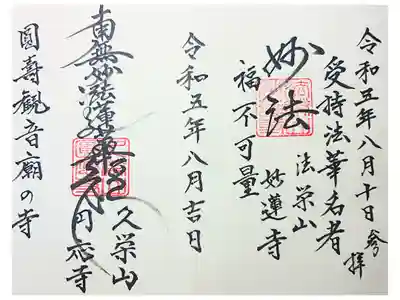 令和五年八月十日参拝
受持法華名者
法栄山
妙蓮寺
妙法
福不可量
令和五年八月吉日
久栄山
円応寺
南無妙法蓮華経
圓壽観音廟の寺